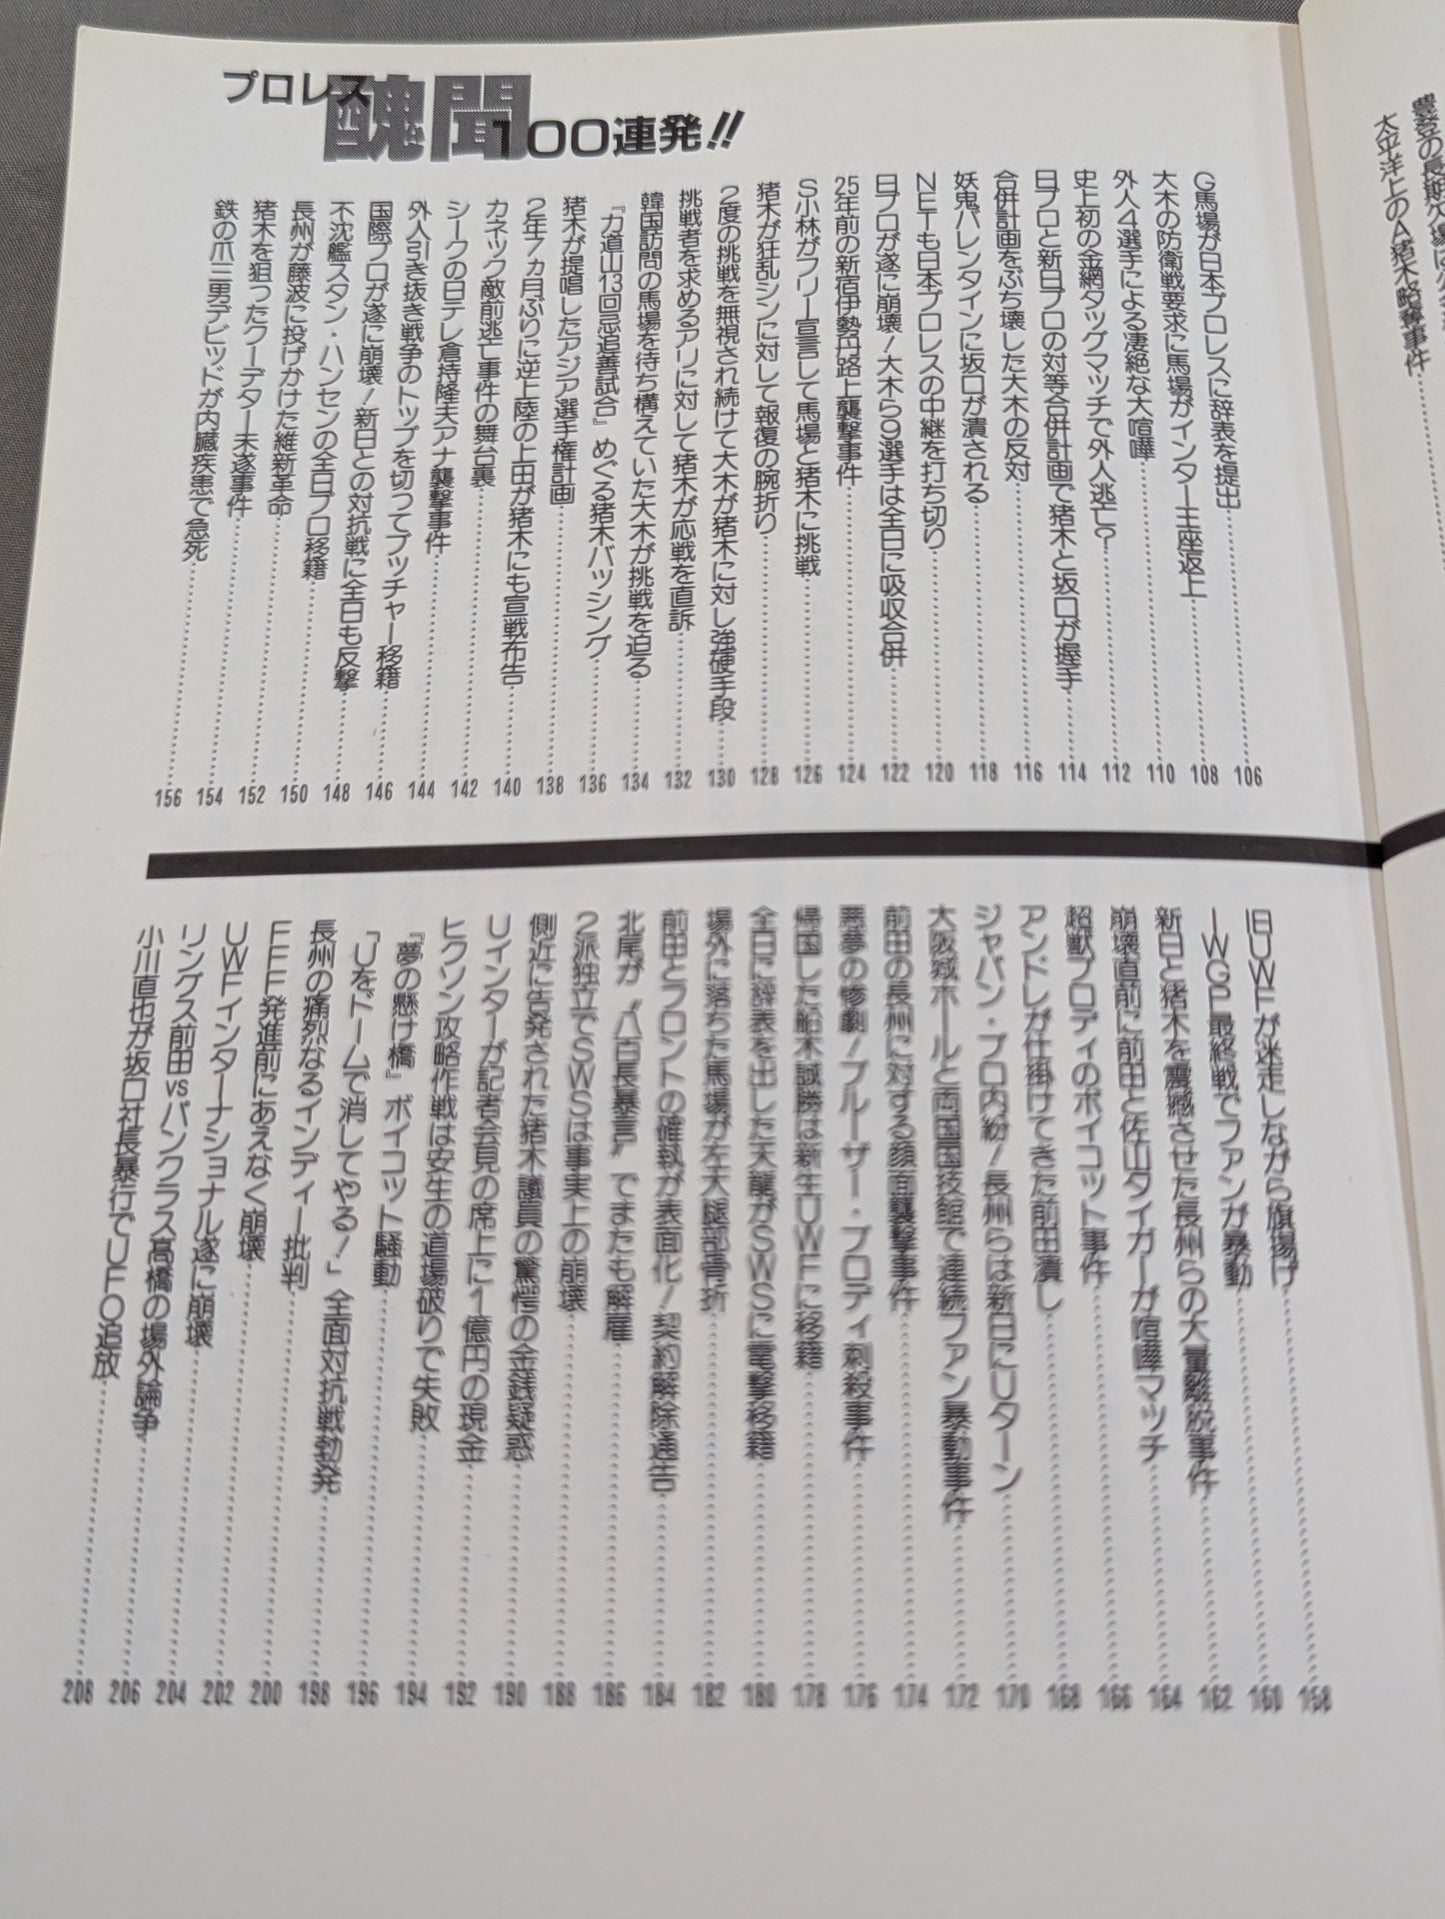 プロレス醜聞100連発!!
G馬場が日本プロレスに辞表を提出……106
大木の防衛戦要求に馬場がインター王座返上……108
外人4選手による凄絶な大喧嘩……110
史上初の金網タッグマッチで外人逃亡?……112
日プロと新日プロの対等合併計画で猪木と坂口が握手……114
合併計画をぶち壊した大木の反対……116
妖鬼バレンタインに坂口が潰される……118
NETも日本プロレスの中継を打ち切り……120
日プロが遂に崩壊!大木ら9選手は全日に吸収合併……122
25年前の新宿伊勢丹路上襲撃事件……124
S小林がフリー宣言して馬場と猪木に挑戦……126
猪木が狂乱シンに対して報復の腕折り……128
2度の挑戦を無視され続けて大木が猪木に対し強硬手段……130
挑戦者を求めるアリに対して猪木が応戦を直訴……132
韓国訪問の馬場を待ち構えていた大木が挑戦を迫る……134
『力道山13回忌追善試合』めぐる猪木バッシング……136
猪木が提唱したアジア選手権計画……138
2年7ヵ月ぶりに逆上陸の上田が猪木にも宣戦布告……140
カネック敵前逃亡事件の舞台裏……142
シークの日テレ倉持隆夫アナ襲撃事件……144
外人引き抜き戦争のトップを切ってブッチャー移籍……146
国際プロが遂に崩壊!新日との対抗戦に全日も反撃……148
不沈艦スタン・ハンセンの全日プロ移籍……150
長州が藤波に投げかけた維新革命……152
猪木を狙ったクーデター未遂事件……154
鉄の爪三男デビッドが内臓疾患で急死……156
旧UWFが迷走しながら旗揚げ……158
IWGP最終戦でファンが暴動……160
新日と猪木を震撼させた長州らの大量離脱事件……162
崩壊直前に前田と佐山タイガーが喧嘩マッチ……164
超獣ブロディのボイコット事件……166
アンドレが仕掛けてきた前田潰し……168
ジャパン・プロ内紛!長州らは新日にUターン……170
大阪城ホールと両国国技館で連続ファン暴動事件……172
前田の長州に対する顔面襲撃事件……174
悪夢の惨劇!ブルーザー・ブロディ刺殺事件……176
帰国した船木誠勝は新生UWFに移籍……178
全日に辞表を出した天龍がSWSに電撃移籍……180
場外に落ちた馬場が左大腿部骨折……182
前田とフロントの確執が表面化!契約解除通告……184
北尾が〝八百長暴言〟でまたも解雇……186
2派独立でSWSは事実上の崩壊……188
側近に告発された猪木議員の驚愕の金銭疑惑……190
Uインターが記者会見の席上に1億円の現金……192
ヒクソン攻略作戦は安生の道場破りで失敗……194
『夢の懸け橋』ボイコット騒動……196
「Uをドームで消してやる!」全面対抗戦勃発……198
長州の痛烈なるインディー批判……200
FFF発進前にあえなく崩壊……202
UWFインターナショナル遂に崩壊……204
リングス前田vsパンクラス高橋の場外論争……206
小川直也が坂口社長暴行でUFO追放……208
太平洋上のA猪木略奪事件……